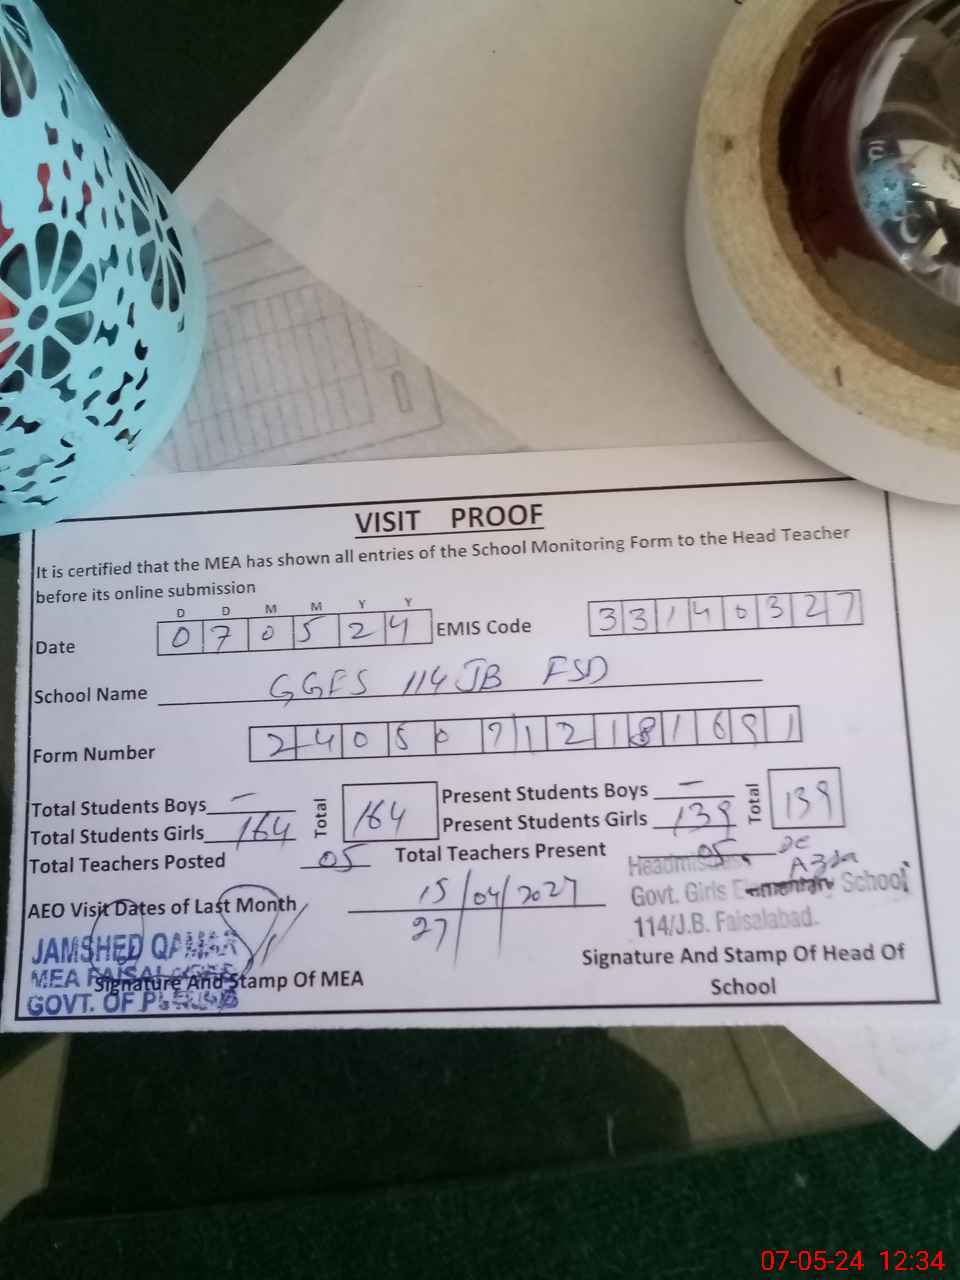 VISIT PROOF
It is certified that the MEA has shown all entries of the School Monitoring Form to the Head Teacher
before its online submission
D D M M Y Y
Date 0 7 0 5 2 4 EMIS Code 3 3 1 4 0 3 2 7
School Name GGES 114 JB FSD
Form Number 2 4 0 5 0 7 1 2 1 8 1 6 9 1
Total Students Boys - Total 164 Present Students Boys - Total 139
Total Students Girls 164 Present Students Girls 139
Total Teachers Posted 05 Total Teachers Present 05
Headmistress
AEO Visit Dates of Last Month 15/04/2024 Govt. Girls Elementary School
27 114/J.B. Faisalabad.
JAMSHED QAMAR
MEA FAISALABAD
Signature And Stamp Of MEA Signature And Stamp Of Head Of
School
GOVT. OF PUNJAB
07-05-24 12:34